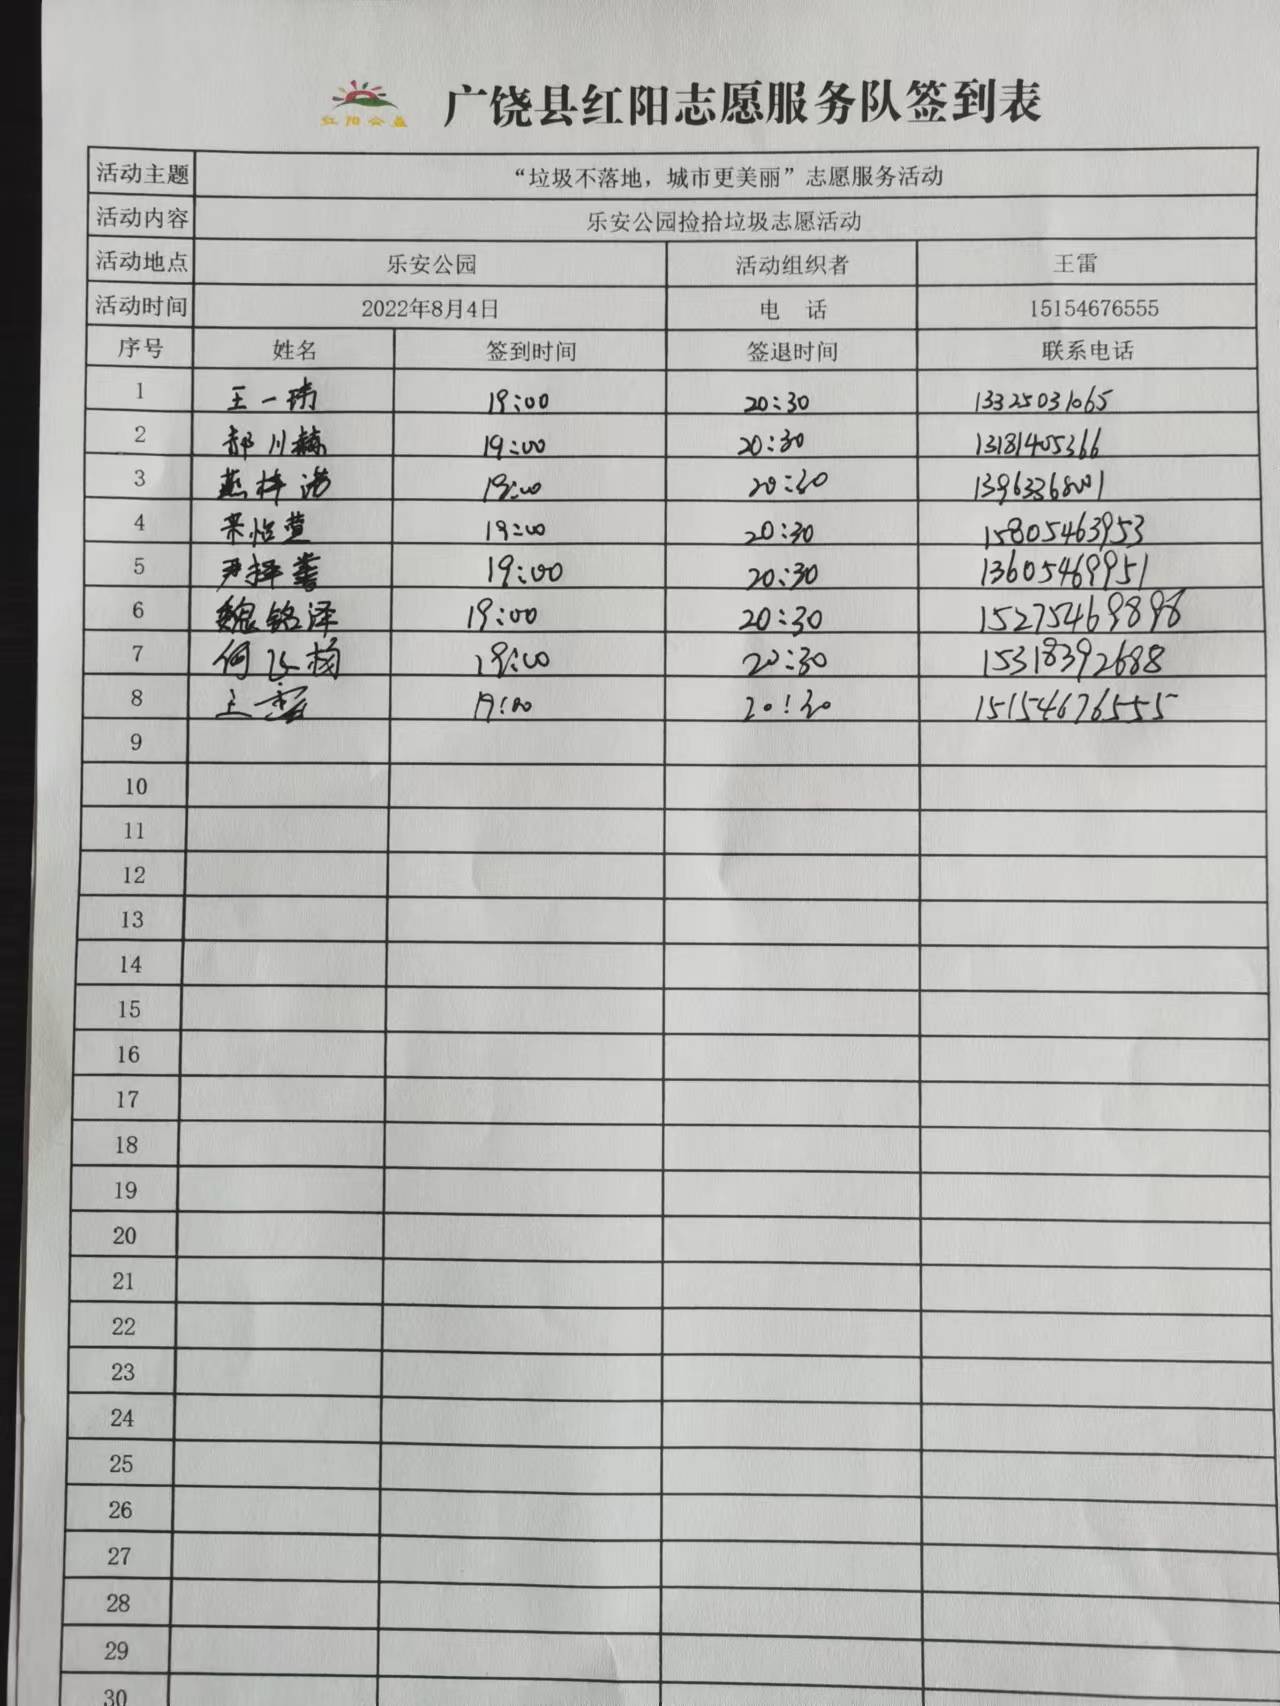 红阳公益
广饶县红阳志愿服务队签到表
活动主题 “垃圾不落地，城市更美丽”志愿服务活动
活动内容 乐安公园捡拾垃圾志愿活动
活动地点 乐安公园 活动组织者 王雷
活动时间 2022年8月4日 电 话 15154676555
序号 姓名 签到时间 签退时间 联系电话
1 王一玮 19:00 20:30 13325031065
2 郝川赫 19:00 20:30 13181405366
3 燕梓浩 19:00 20:30 13963368001
4 宋怡萱 19:00 20:30 15805463953
5 19:00 20:30 13605469951
6 魏铭泽 19:00 20:30 15275469898
7 19:00 20:30 15318392688
8 王雷 19:00 20:30 15154676555
9
10
11
12
13
14
15
16
17
18
19
20
21
22
23
24
25
26
27
28
29
30